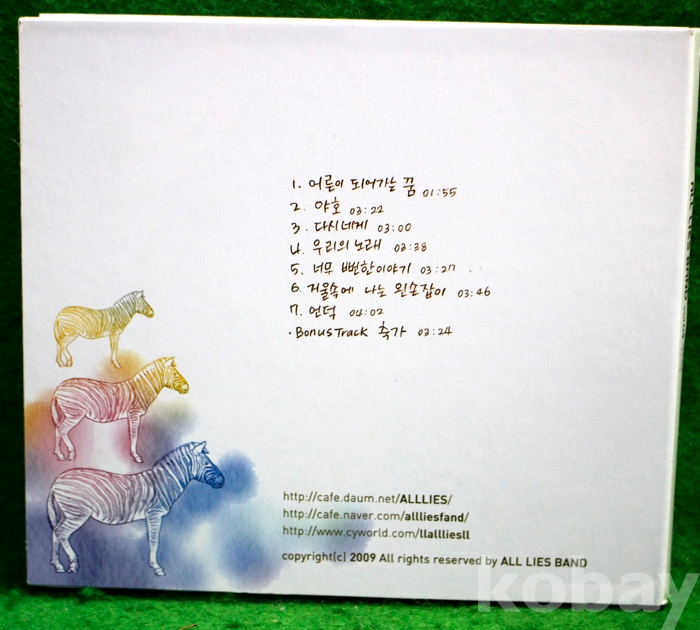 1. 어른이 되어가는 꿈 01:55
2. 야호 03:22
3. 다시네게 03:00
4. 우리의 노래 03:38
5. 너무 뻔한이야기 03:27
6. 거울속에 나는 왼손잡이 03:46
7. 언덕 04:02
·Bonus Track 축가 03:24
http://cafe.daum.net/ALLLIES/
http://cafe.naver.com/allliesfand/
http://www.cyworld.com/llalllliesll
copyright(c) 2009 All rights reserved by ALL LIES BAND
kobay